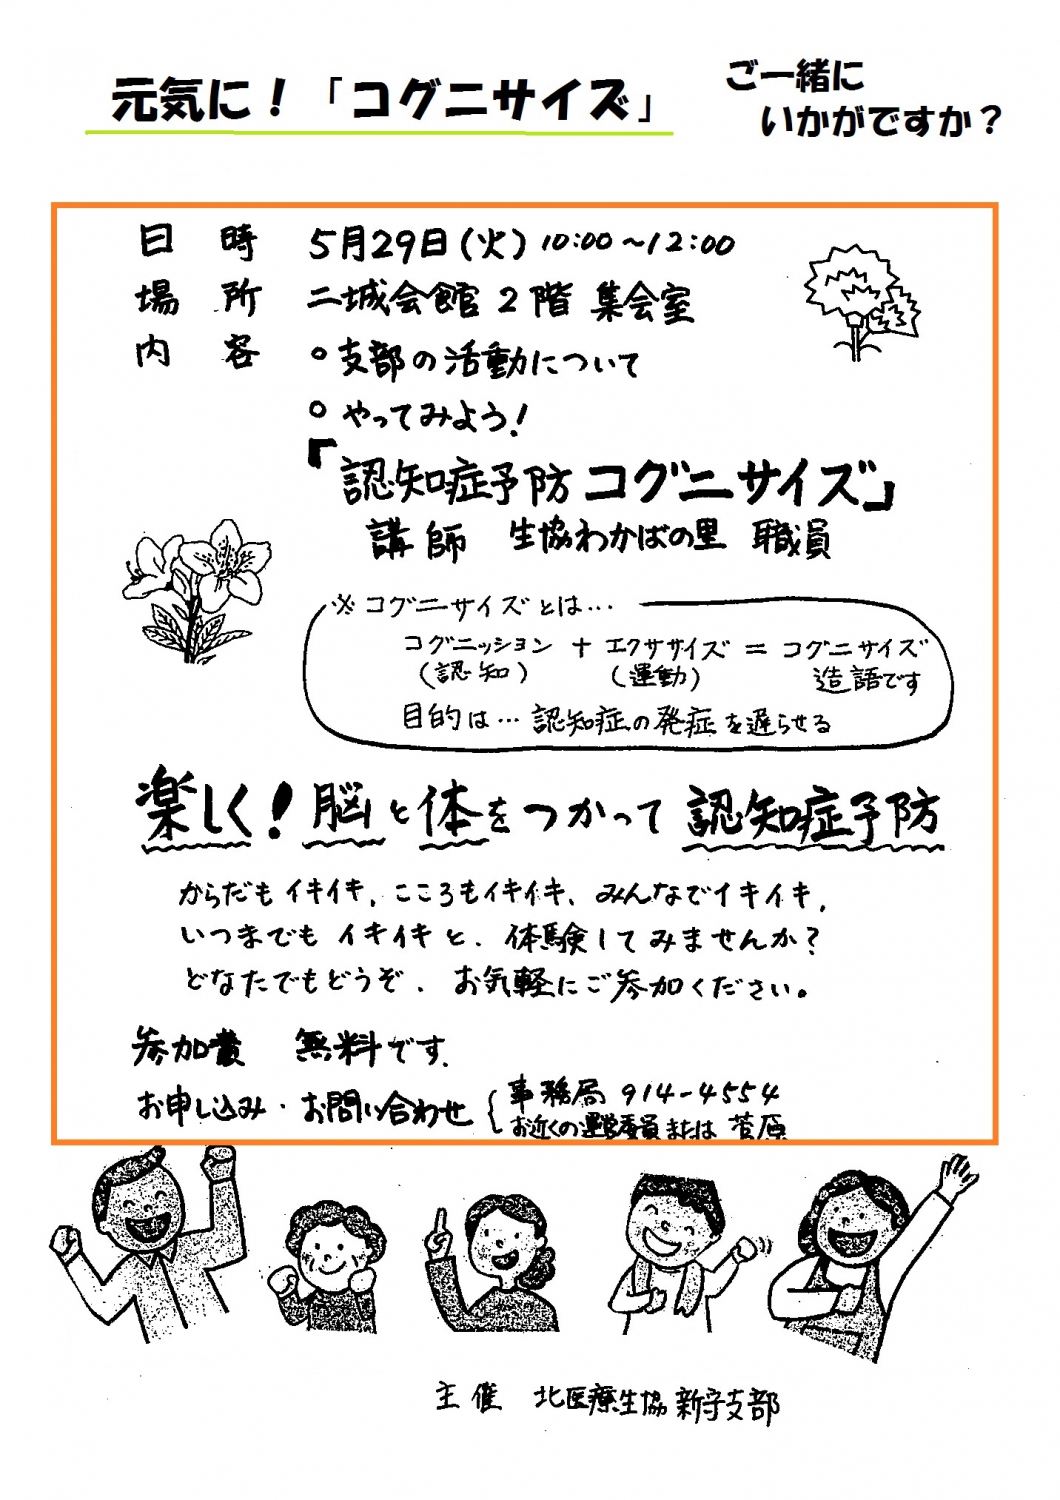 元気に！「コグニサイズ」
ご一緒に
いかがですか？
日時 5月29日(火)10:00～12:00
場所 二城会館 2階 集会室
内容 ○支部の活動について
○やってみよう！
『認知症予防コグニサイズ』
講師 生協わかばの里 職員
※コグニサイズとは…
コグニッション + エクササイズ = コグニサイズ
(認知) (運動) 造語です
目的は…認知症の発症を遅らせる
楽しく！脳と体をつかって認知症予防
からだもイキイキ、こころもイキイキ、みんなでイキイキ、
いつまでもイキイキと、体験してみませんか？
どなたでもどうぞ、お気軽にご参加ください。
参加費 無料です。
お申し込み・お問い合わせ 事務局 914-4554
お近くの運営委員または 菅原
主催 北医療生協 新守支部